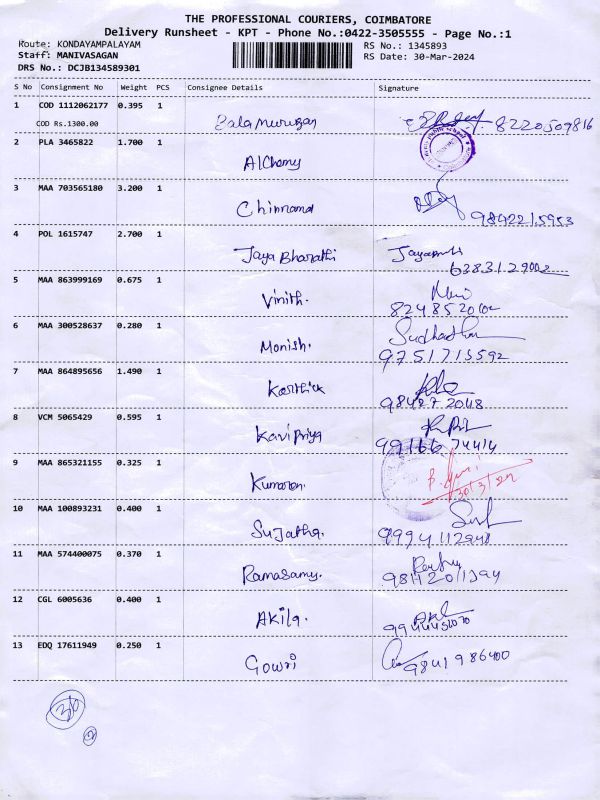 THE PROFESSIONAL COURIERS, COIMBATORE
Delivery Runsheet - KPT - Phone No.:0422-3505555 - Page No.:1
Route: KONDAYAMPALAYAM RS No.: 1345893
Staff: MANIVASAGAN RS Date: 30-Mar-2024
DRS No.: DCJB134589301
S No Consignment No Weight PCS Consignee Details Signature
1 COD 1112062177 0.395 1
COD Rs.1300.00 Balamurugan 8220509816
2 PLA 3465822 1.700 1
AlChemy
3 MAA 703565180 3.200 1
Chinnama
9842215953
4 POL 1615747 2.700 1
Jaya Bharathi
6383129002
5 MAA 863999169 0.675 1
Vinith.
6 MAA 300528637 0.280 1
Monish.
9751713592
7 MAA 864895656 1.490 1
Karthick
8 VCM 5065429 0.595 1
Kavi Priya
9 MAA 865321155 0.325 1
Kumaran. 30/3/24
10 MAA 100893231 0.400 1
Sujatha.
9994112948
11 MAA 574400075 0.370 1
Ramasamy.
12 CGL 6005636 0.400 1
Akila.
13 EDQ 17611949 0.250 1
Gowri 9841986400